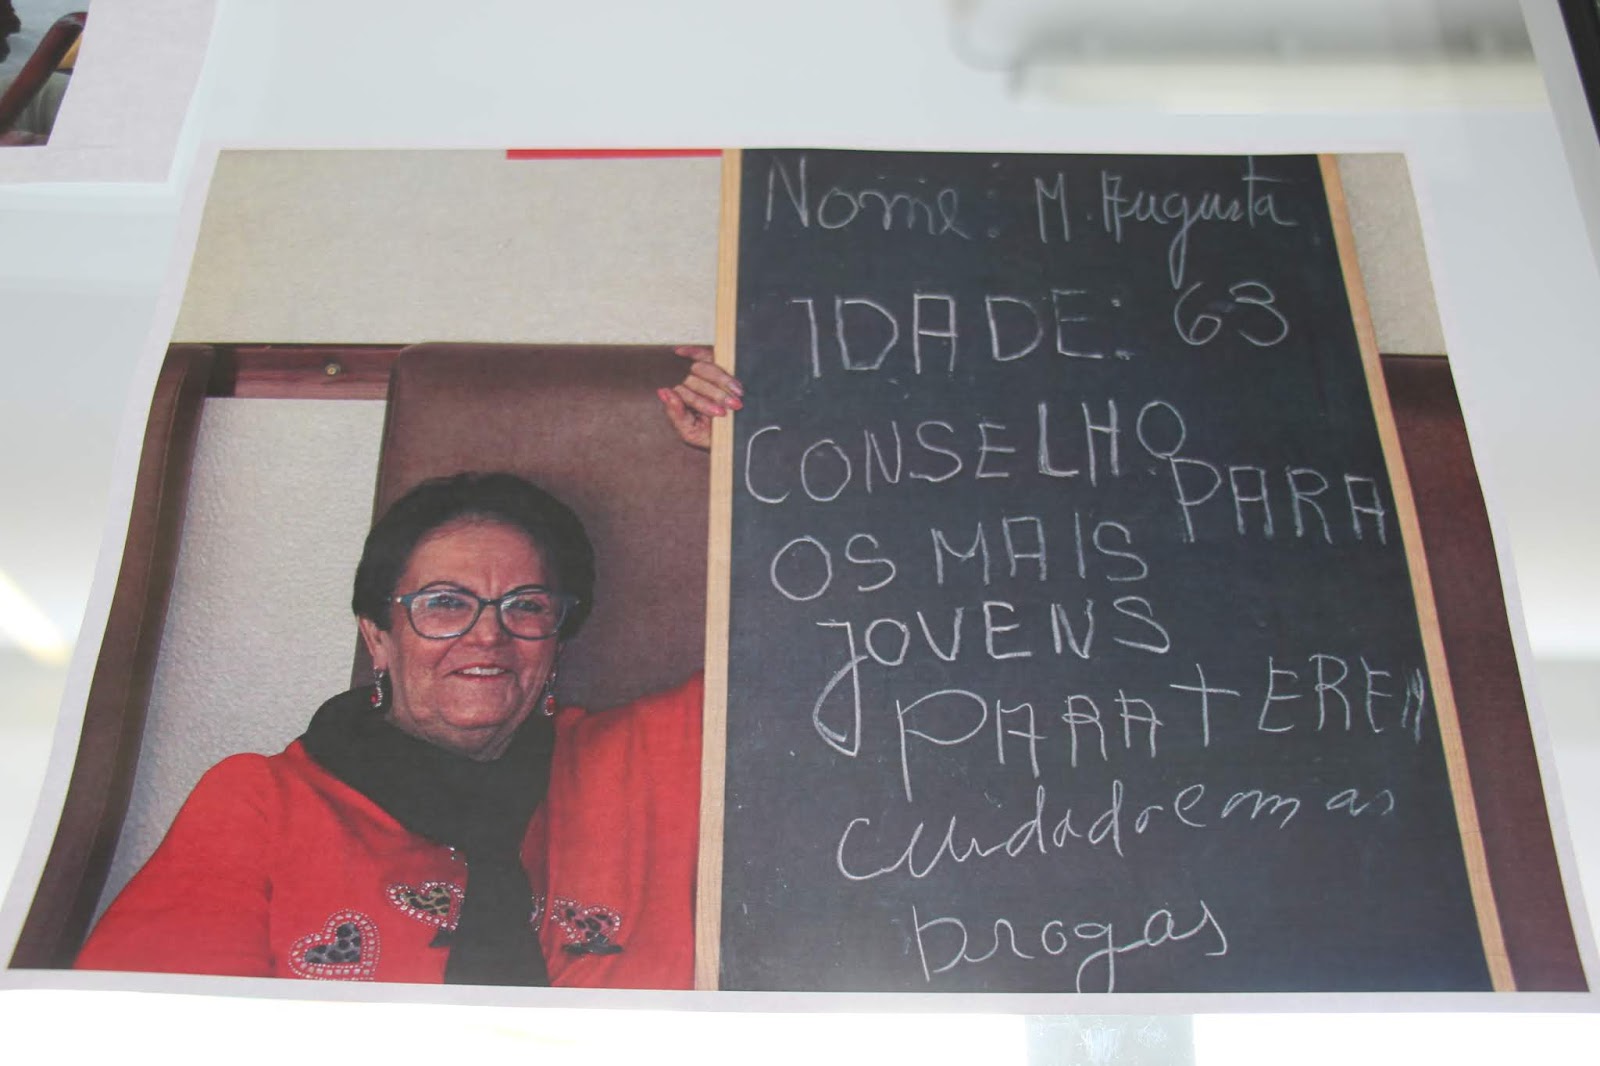 Nome: M. Augusta
IDADE: 63
CONSELHO PARA
OS MAIS
JOVENS
PARA TEREM
cuidado com as
Drogas